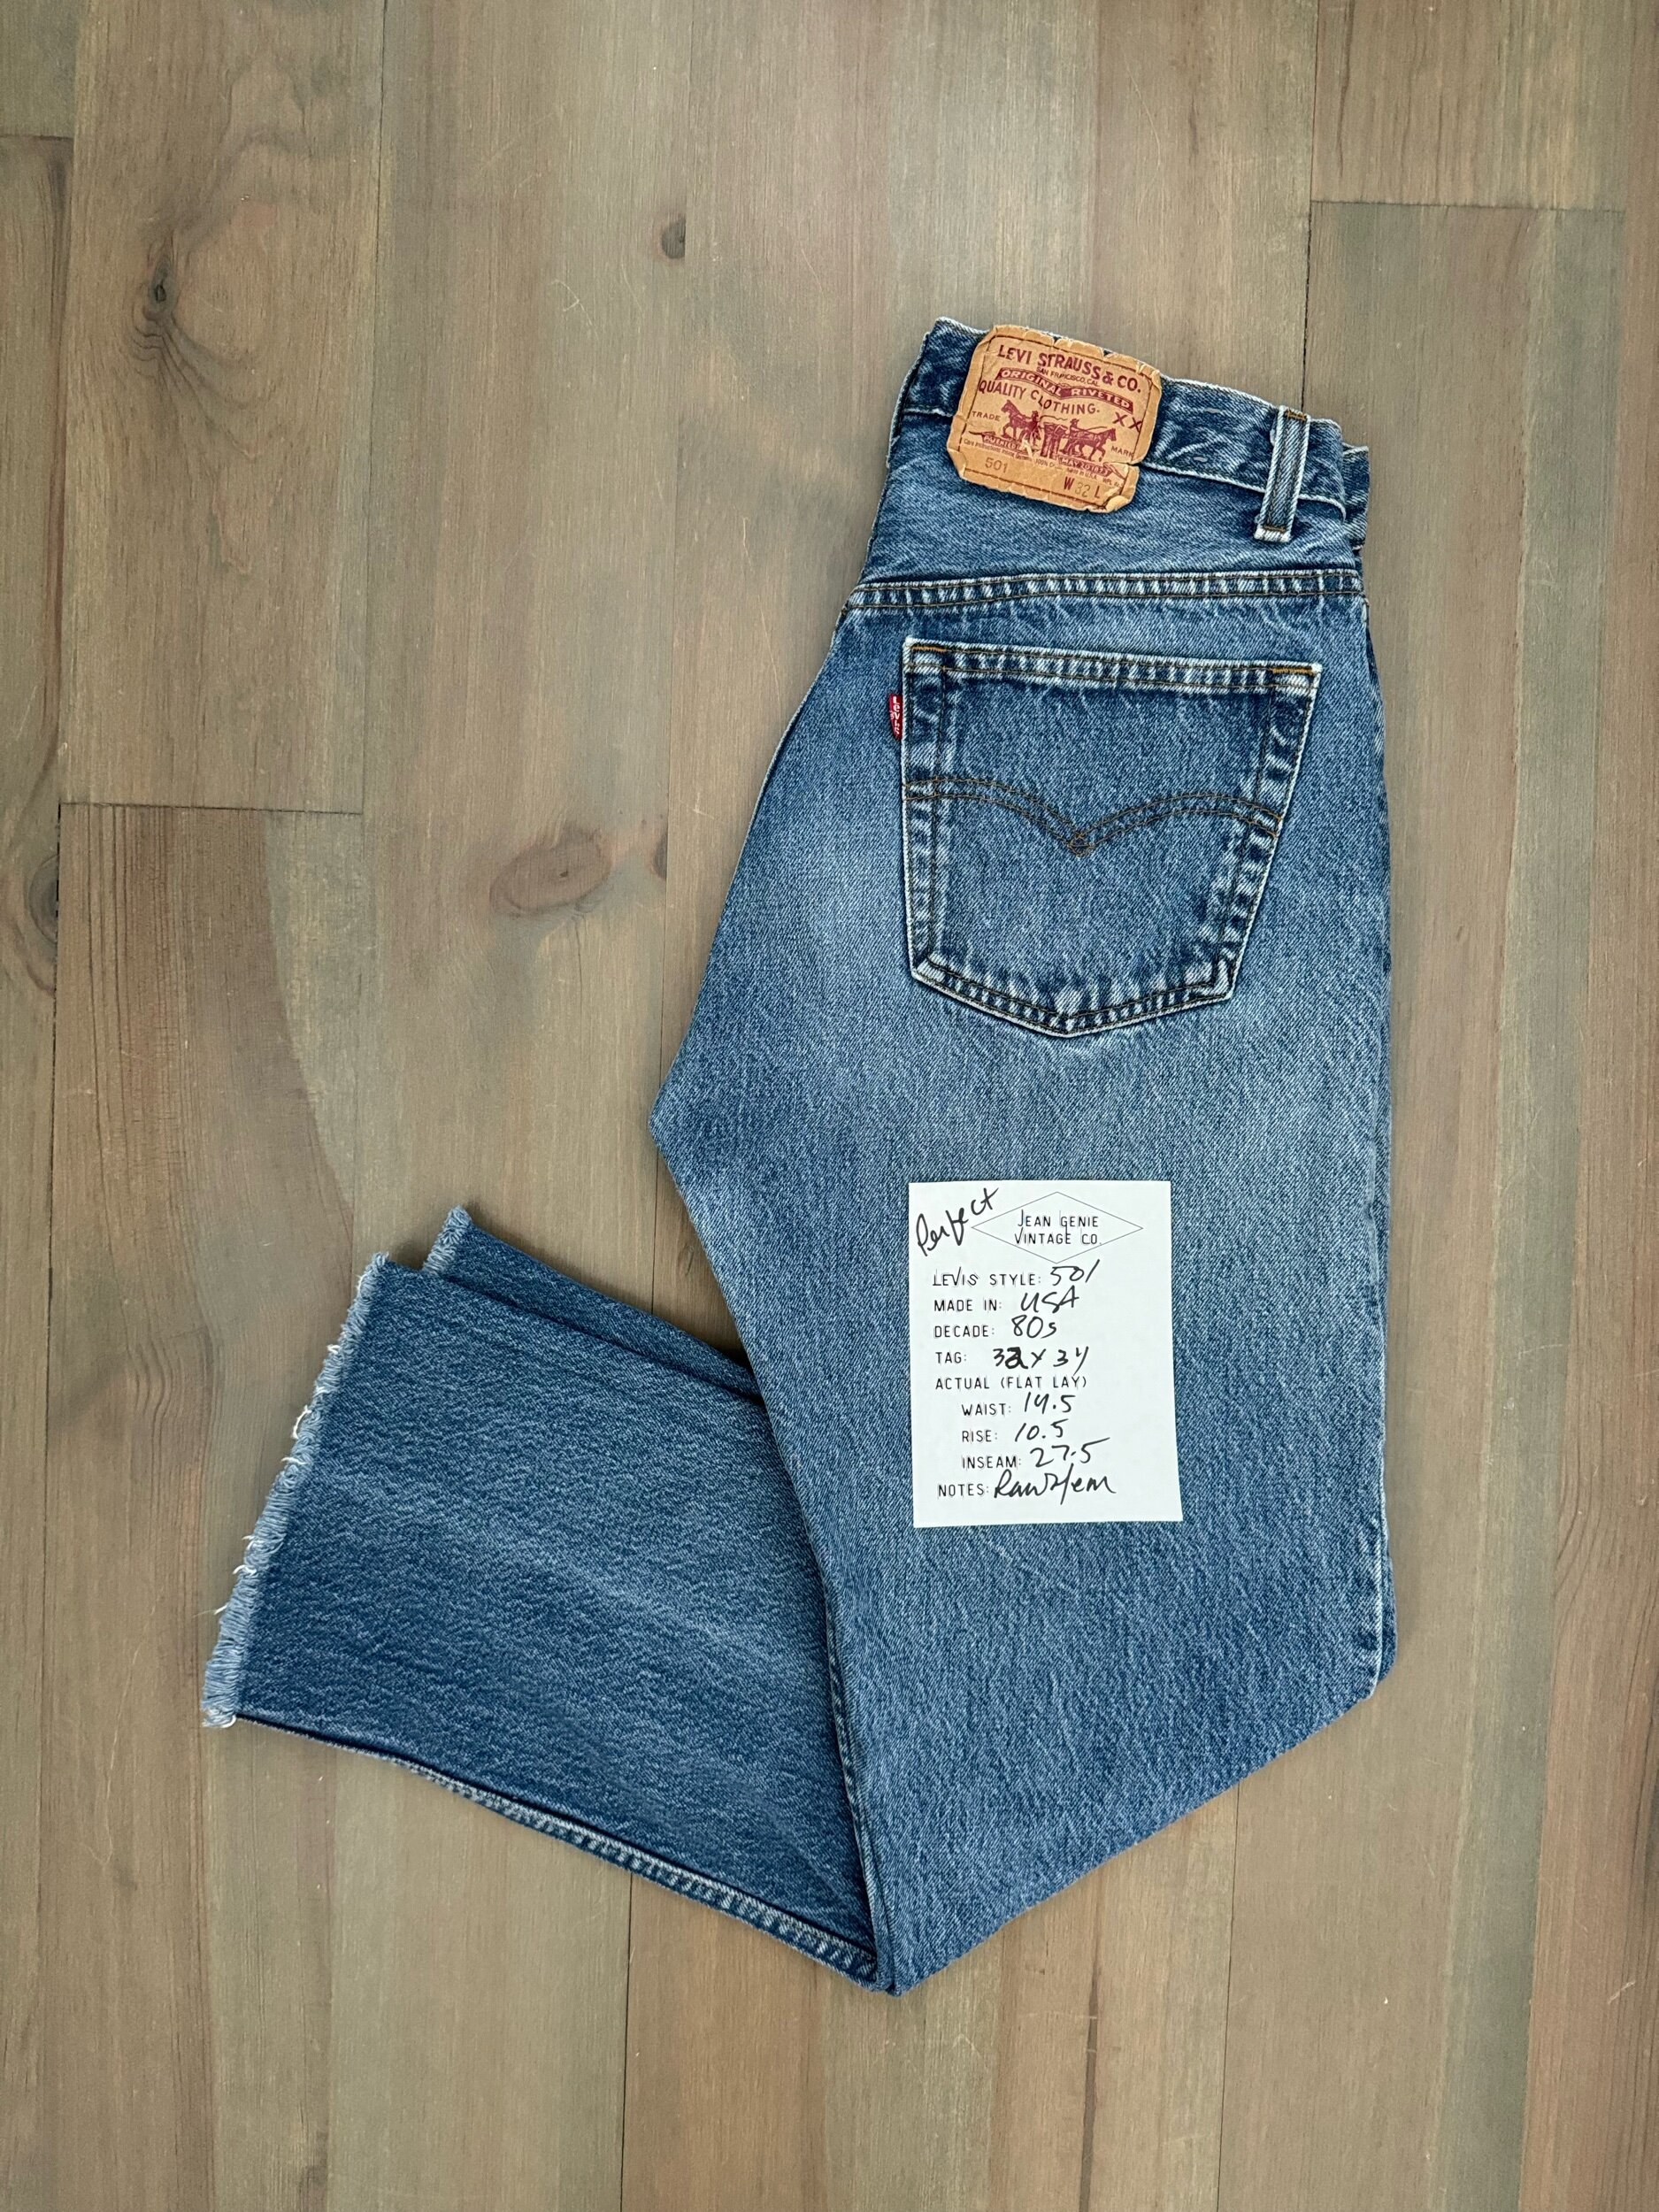 LEVI STRAUSS & CO.
SAN FRANCISCO, CAL.
ORIGINAL RIVETED
QUALITY CLOTHING.
XX
TRADE MARK
PATENTED MAY 20 1873
501
W 32 L
LEVI'S
Perfect
JEAN GENIE
VINTAGE CO.
LEVIS STYLE: 501
MADE IN: USA
DECADE: 80s
TAG: 32 x 34
ACTUAL (FLAT LAY)
WAIST: 14.5
RISE: 10.5
INSEAM: 27.5
NOTES: Raw Hem